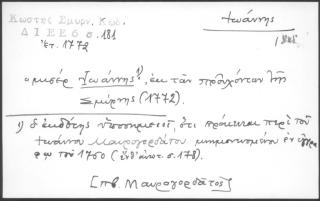 Κωστής Σμυρν. Κωδ.
Δ Ι Ε Ε 6 σ. 181
Ἔτ. 1772
Ἰωάννης
"μισὲρ Ἰωάννης¹⁾, ἐκ τῶν προὐχόντων τῆς
Σμύρνης (1772).
1) ὁ ἐκδότης ὑποσημειοῖ, ὅτι πρόκειται περὶ τοῦ
Ἰωάννου Μαυρογορδάτου μνημονευομένου ἐν ἐγγρά-
φῳ τοῦ 1760 (ἔνθ' ἀνωτ. σ. 178).
[πβ. Μαυρογορδᾶτος]